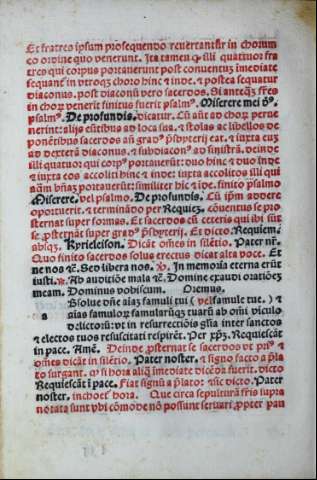 Et fratres ipsum prosequendo revertantur in chorum
eo ordine quo venerunt. Ita tamen ꝙ illi quatuor fra
tres qui corpus portaverunt post conventum imediate
sequantur in utroqꝫ choro hinc ⁊ inde. ⁊ postea sequatur
diaconus. post diaconum vero sacerdos. Si anteqꝫ fres
in chorum venerit finitus fuerit psalmus. Miserere mei deus.
psalmus. De profundis. dicatur. Cum autem ad chorum perve
nerint: aliis euntibus ad loca sua. ⁊ stolas ac libellos de
ponentibus sacerdos ante gradum presbyterii eat. ⁊ iuxta eum
ad dexteram diaconus. ⁊ subdiaconus ad sinistram. deinde
illi quatuor qui corpus portaverunt: duo hinc ⁊ duo inde
⁊ iuxta eos accoliti hinc ⁊ inde: iuxta accolitos illi qui
portaverunt: similiter hic ⁊ inde. finito psalmo
Miserere. vel psalmo. De profundis. Cum ipsum adere
oportuerit. ⁊ terminando per Requiem. conventus se pro
sternat super formas. Et sacerdos cum ceteris qui ibi sunt
se prosternat super gradum presbyterii. Et dicto. Requiem.
absqꝫ. Kyrieleison. Dicat omnes in silentio. Pater noster.
Quo finito sacerdos solus erectus dicat alta voce. Et
ne nos ⁊c. Sed libera nos. In memoria eterna erit
iustus. Ab auditione mala ⁊c. Domine exaudi orationem
meam. Dominus vobiscum. Oremus.
Absolve domine animas famuli tui (vel famule tue.) ⁊
animas famulorum famularumqꝫ tuarum ab omni vinculo
delictorum: ut in resurrectionis gloria inter sanctos
⁊ electos tuos resuscitati respirent. Per christum. Requiescat
in pace. Amen. Deinde prosternat se sacerdos ut prius ⁊
omnes dicat in silentio. Pater noster. ⁊ signo facto a prela
to surgant. ꝙ si hora aliqua imediate dicenda fuerit. dicto
Requiescat in pace. Fiat signum a prelato: nec dicto. Pater
noster. inchoetur hora. Que circa sepulturam fratris supra
notata sunt ubi comode non possunt servari propter pau